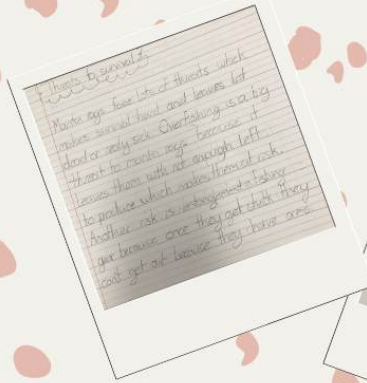 Threats to survival :
Manta rays face lots of threats which
makes survival hard and leaves lot
dead or really sick. Overfishing is a big
threat to manta rays because it
leaves them with not enough left
to produce which makes them at risk.
Another risk is fishing
gear because once they get stuck they
cant get out because they have one